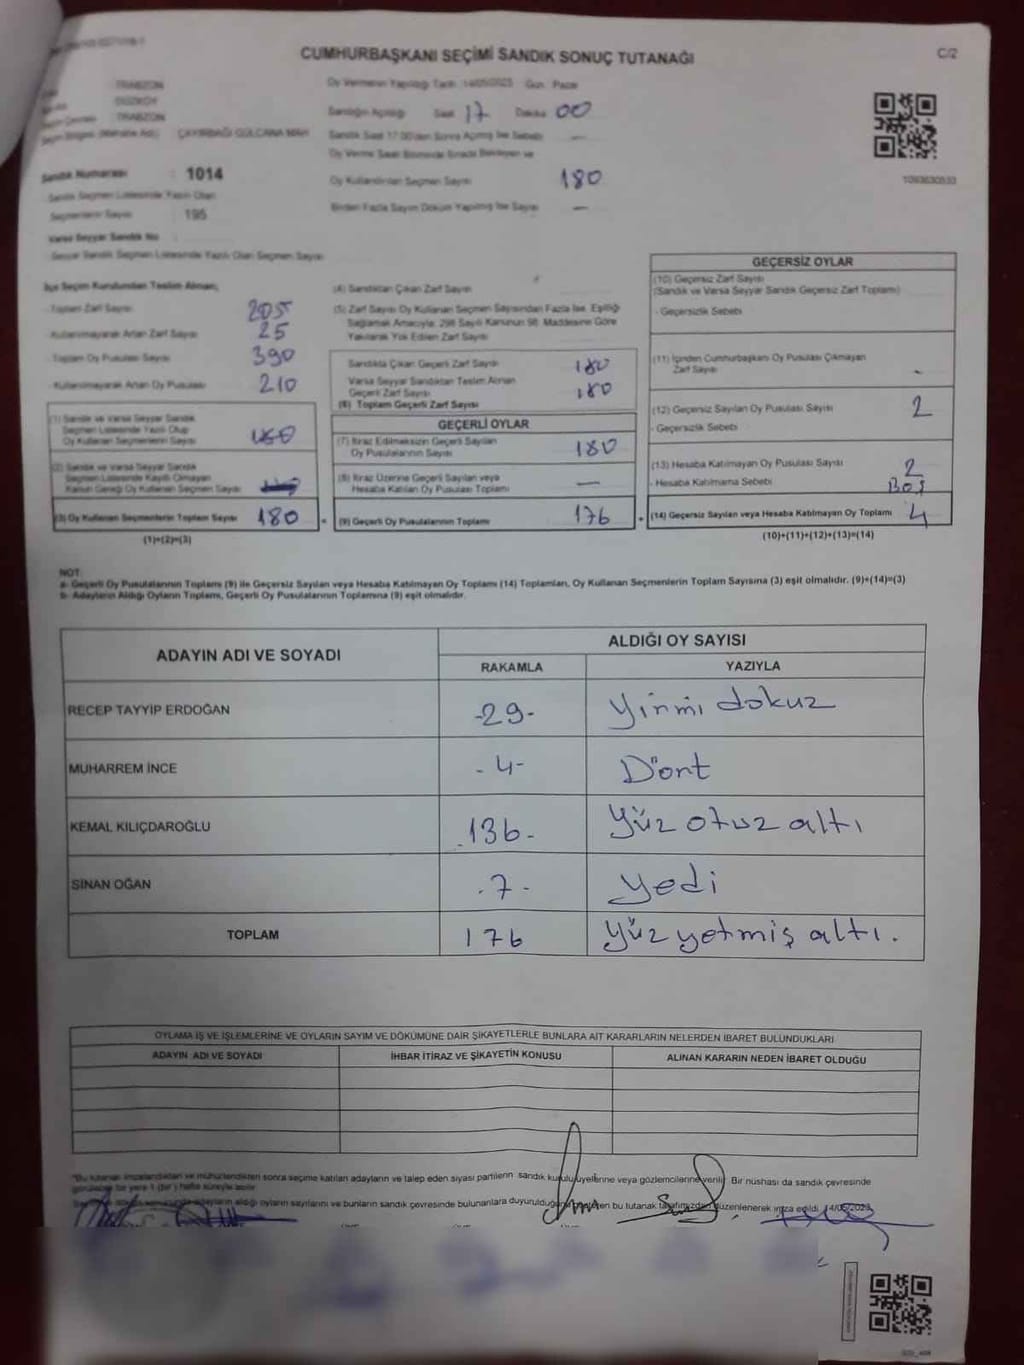 CUMHURBAŞKANI SEÇİMİ SANDIK SONUÇ TUTANAĞI
C/2
TRABZON
DÜZKÖY
TRABZON
ÇAYIRBAĞI GÜLCANA MAH
Oy Vermenin Yapıldığı Tarih : 14/05/2023 Gün : Pazar
Sandığın Açılışı Saat 17 Dakika 00
Sandık Saat 17:00'den Sonra Açılmış İse Sebebi —
Sandık Numarası : 1014
Oy Verme Saati Bitiminde Sırada Bekleyen ve
Oy Kullandırılan Seçmen Sayısı 180
Birden Fazla Sayım Döküm Yapılmış İse Sayısı —
Sandık Seçmen Listesinde Yazılı Olan
Seçmenlerin Sayısı : 195
Varsa Seyyar Sandık No
Seyyar Sandık Seçmen Listesinde Yazılı Olan Seçmen Sayısı
İlçe Seçim Kurulundan Teslim Alınan;
- Toplam Zarf Sayısı 205
- Kullanılmayarak Artan Zarf Sayısı 25
- Toplam Oy Pusulası Sayısı 390
- Kullanılmayarak Artan Oy Pusulası 210
(1) Sandık ve Varsa Seyyar Sandık
Seçmen Listesinde Yazılı Olup
Oy Kullanan Seçmenlerin Sayısı
(2) Sandık ve Varsa Seyyar Sandık
Seçmen Listesinde Kayıtlı Olmayan
Kanun Gereği Oy Kullanan Seçmen Sayısı
(3) Oy Kullanan Seçmenlerin Toplam Sayısı 180 =
(1)+(2)=(3)
(4) Sandıktan Çıkan Zarf Sayısı
(5) Zarf Sayısı Oy Kullanan Seçmen Sayısından Fazla İse, Eşitliği
Sağlamak Amacıyla; 298 Sayılı Kanunun 98. Maddesine Göre
Yakılarak Yok Edilen Zarf Sayısı
Sandıkta Çıkan Geçerli Zarf Sayısı 180
Varsa Seyyar Sandıktan Teslim Alınan
Geçerli Zarf Sayısı 180
(6) Toplam Geçerli Zarf Sayısı
GEÇERLİ OYLAR
(7) İtiraz Edilmeksizin Geçerli Sayılan
Oy Pusulalarının Sayısı 180
(8) İtiraz Üzerine Geçerli Sayılan veya
Hesaba Katılan Oy Pusulası Toplamı —
(9) Geçerli Oy Pusulalarının Toplamı 176 +
GEÇERSİZ OYLAR
(10) Geçersiz Zarf Sayısı
(Sandık ve Varsa Seyyar Sandık Geçersiz Zarf Toplamı)
- Geçersizlik Sebebi
(11) İçinden Cumhurbaşkanı Oy Pusulası Çıkmayan
Zarf Sayısı -
(12) Geçersiz Sayılan Oy Pusulası Sayısı 2
- Geçersizlik Sebebi
(13) Hesaba Katılmayan Oy Pusulası Sayısı 2
- Hesaba Katılmama Sebebi Boş
(14) Geçersiz Sayılan veya Hesaba Katılmayan Oy Toplamı 4
(10)+(11)+(12)+(13)=(14)
NOT:
a- Geçerli Oy Pusulalarının Toplamı (9) ile Geçersiz Sayılan veya Hesaba Katılmayan Oy Toplamı (14) Toplamları, Oy Kullanan Seçmenlerin Toplam Sayısına (3) eşit olmalıdır. (9)+(14)=(3)
b- Adayların Aldığı Oyların Toplamı, Geçerli Oy Pusulalarının Toplamına (9) eşit olmalıdır.
ADAYIN ADI VE SOYADI
ALDIĞI OY SAYISI
RAKAMLA YAZIYLA
RECEP TAYYİP ERDOĞAN -29- Yirmi dokuz
MUHARREM İNCE -4- Dört
KEMAL KILIÇDAROĞLU -136- Yüz otuz altı
SİNAN OĞAN -7- yedi
TOPLAM 176 Yüz yetmiş altı.
OYLAMA İŞ VE İŞLEMLERİNE VE OYLARIN SAYIM VE DÖKÜMÜNE DAİR ŞİKAYETLERLE BUNLARA AİT KARARLARIN NELERDEN İBARET BULUNDUKLARI
ADAYIN ADI VE SOYADI İHBAR İTİRAZ VE ŞİKAYETİN KONUSU ALINAN KARARIN NEDEN İBARET OLDUĞU
*Bu tutanak imzalandıktan ve mühürlendikten sonra seçime katılan adayların ve talep eden siyasi partilerin sandık kurulu üyelerine veya gözlemcilerine verilir. Bir nüshası da sandık çevresinde
görülecek bir yere 1 (bir) hafta süreyle asılır.
adayların aldığı oyların sayılarını ve bunların sandık çevresinde bulunanlara duyurulduğunu gösteren bu tutanak tarafımızdan düzenlenerek imza edildi. 14/05/2023